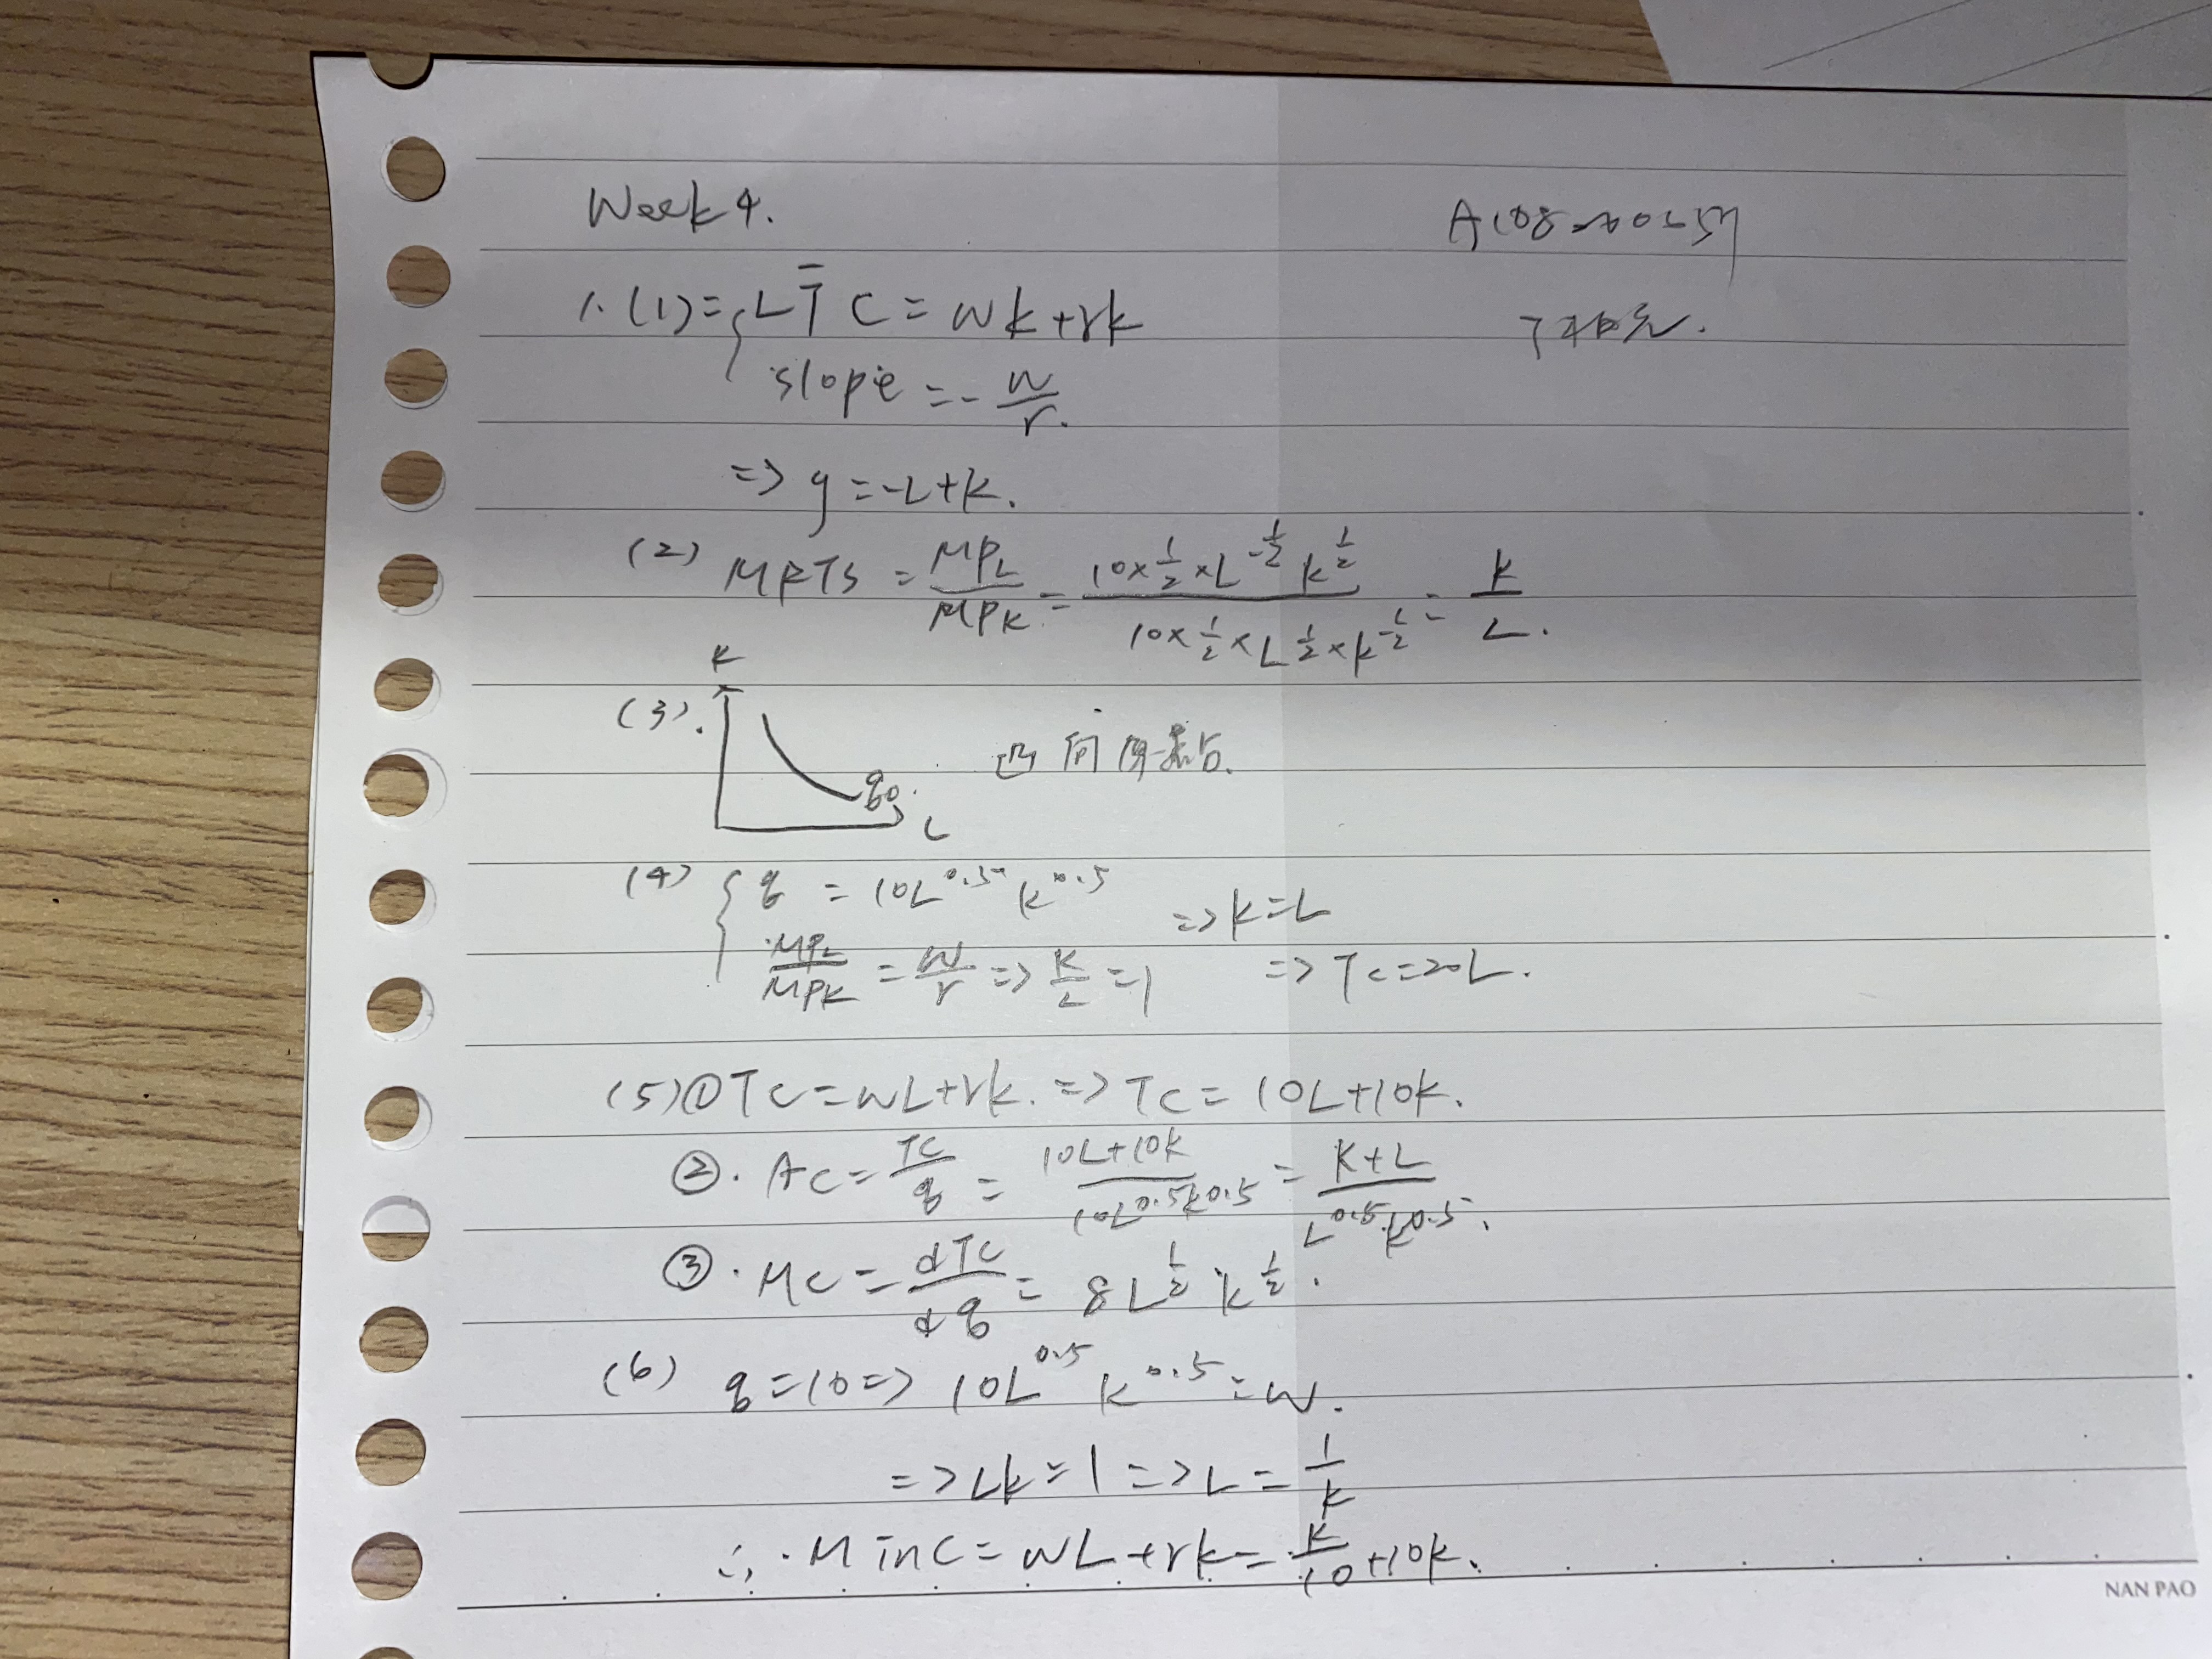 Week 4.
A108-40-54
1. (1) = { L T̄C = wk + rk
slopie = - w/r.
=> y = -L + k.
(2) MRTS = MPL/MPk = 10x½xL^-½ k^½ / 10x½xL^½xk^-½ = k/L.
(3). k
q0.
L
凸向原點.
(4) { q = 10L^0.5 k^0.5
=> k = L
MPL/MPk = w/r => k/L = 1
=> Tc = 20L.
(5) ① Tc = wL + rk. => Tc = 10L + 10k.
②. Ac = Tc/q = 10L+10k / 10L^0.5k^0.5 = k+L / L^0.5k^0.5.
③. Mc = dTc/dq = 8L^½ k^½.
(6) q = 10 => 10L^0.5 k^0.5 = w.
=> Lk = 1 => L = 1/k
∴ Min C = wL + rk = k/10 + 10k.
NAN PAO